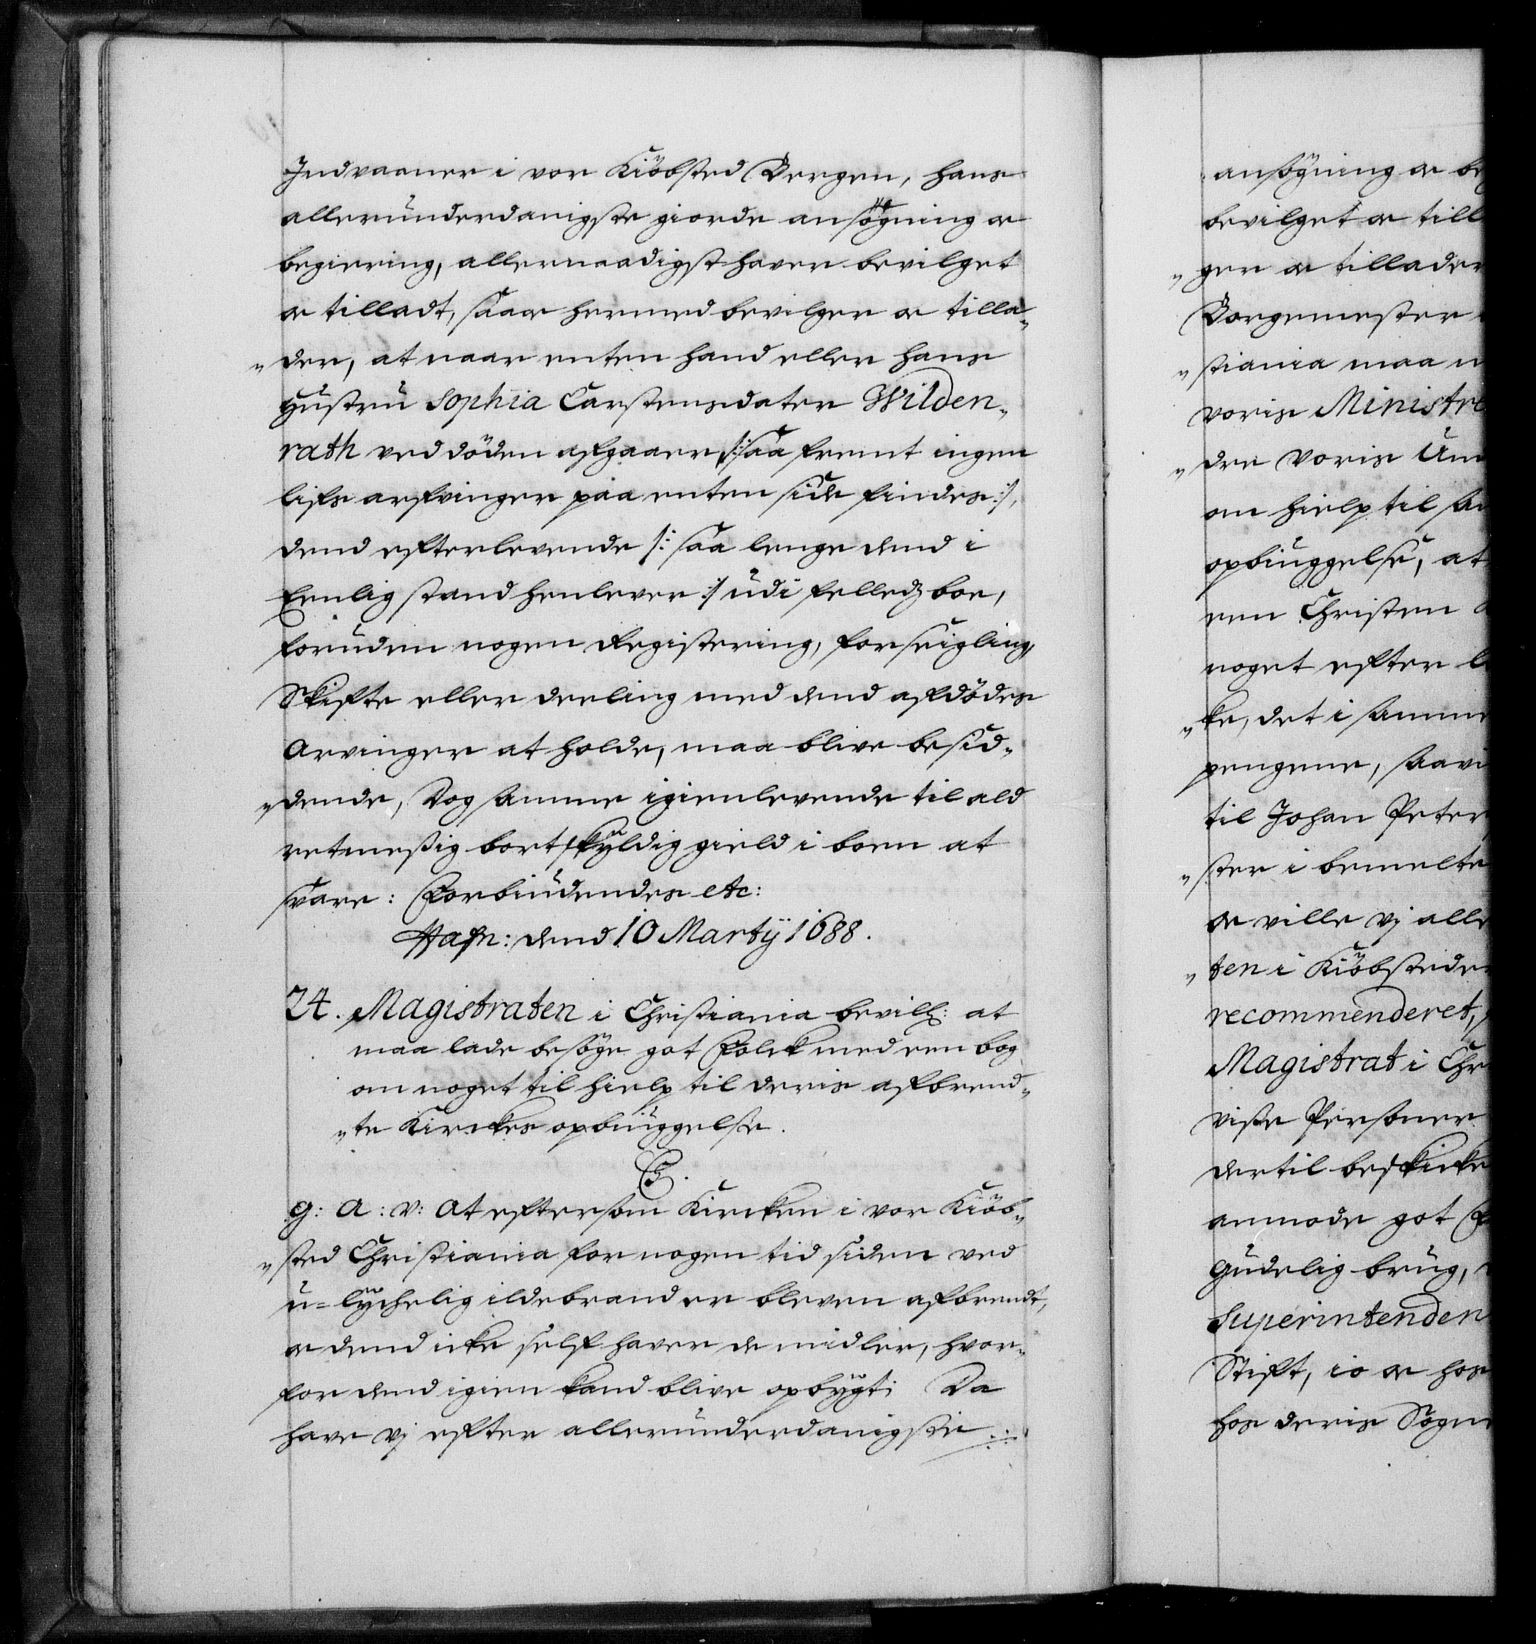 Indvaaner i vor Kiöbsted Bergen, hans
allerunderdanigste giorde ansögning oc
begiering, allernaadigst haver bevilget
oc tilladt, saa oc hermed bevilger oc tilla„
„der, at naar enten hand eller hans
Hustru Sophia Carstensdater Wilden„
rath ved döden afgaaer /: saa fremt ingen
lifs arfvinger paa enten side findes :/,
dend efterlevende /: saa lenge dend i
Eenlig stand henlever :/ udi felledz boe,
foruden nogen Registering, forseigling,
Skifte eller deeling med dend afdödes
Arvinger at holde, maa blive besid„
„dende, Dog samme igienlevende til ald
retmeßig bortskyldig gield i boen at
svare: Forbiudendes etc:
Hafn: dend 10 Martij 1688.
24. Magistraten i Christiania bevilh: at
maa lade besöge got Folck med een bog
om noget til hielp til deris afbrend„
„te Kirckes opbiuggelse.
C5.
G: A: V: At eftersom Kircken i vor Kiöb„
„sted Christiania for nogen tid siden ved
u=lyckelig ildebrand er bleven afbrendt,
oc dend icke self haver de midler, hvor„
for dend igien kand blive opbygt; Da
have vj efter allerunderdanigste
ansögning oc be
bevilget oc till
„ger oc tillader
Borgemester
„stiania maa
voris Ministre
„dre voris Un
om hielp til
opbiuggelse, at
een Christen
noget efter
„ke, det i samme
pengene, saavi
til Johan Peter
„ster i bemelte
oc ville vj alle
„ten i Kiöbstede
recommenderet,
Magistrat i Chr
viße Personer
dertil beskicke
anmode got F
Gudelig brug,
Superintenden
Stift, io oc hos
hos deris Sogne